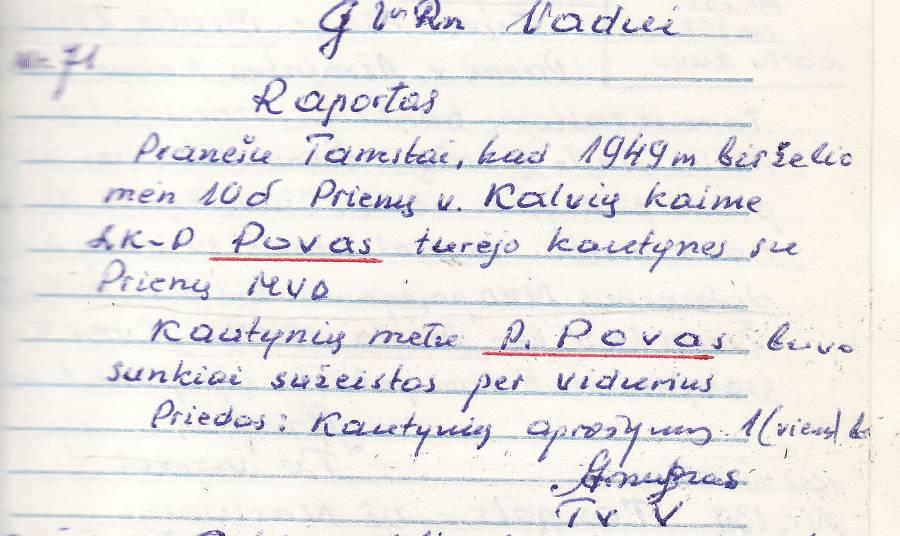 Vadui
71
Raportas
Pranešu Tamstai, kad 1949 m birželio
mėn 10 d Prienų v. Kalvių kaime
SK-D Povas turėjo kautynes su
Prienų MVD
Kautynių metu P. Povas buvo
sunkiai sužeistas per vidurius
Priedas: Kautynių aprašymas 1 (vienas)
Tv V